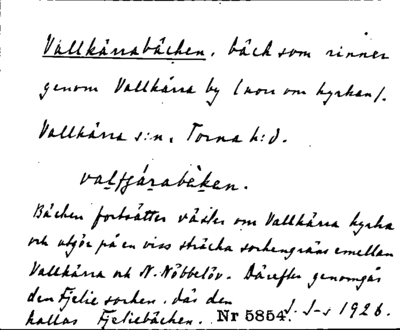 Vallkärrabäcken. bäck som rinner
genom Vallkärra by (norr om kyrkan).
Vallkärra s:n, Torna h:d.
valtjárabeken.
Bäcken fortsätter väster om Vallkärra kyrka
och utgör på en viss sträcka sockengräns emellan
Vallkärra och N. Nöbbelöv. Därefter genomgår
den Fjelie socken, där den
kallas Fjeliebäcken. Nr 5854. 1926.